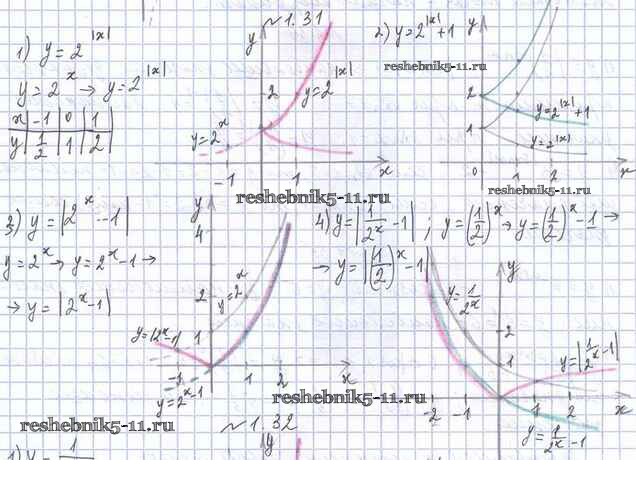 №1.31
1) y = 2^|x|
y = 2^x → y = 2^|x|
x | -1 | 0 | 1
y | 1/2 | 1 | 2
y
2
y=2^|x|
y=2^x
-1 1 x
2) y=2^|x|+1
reshebnik5-11.ru
y
2
y=2^|x|+1
1
y=2^|x|
0 1 2 x
reshebnik5-11.ru
reshebnik5-11.ru
3) y = |2^x - 1|
y = 2^x → y = 2^x-1 →
→ y = |2^x-1|
y
4
2
y=2^x
1
y=|2^x-1|
-1 1 2 x
y=2^x-1
4) y=|1/2^x -1| ; y=(1/2)^x → y=(1/2)^x -1 →
→ y=|(1/2)^x -1|
y
y=1/2^x
2
1
y=|1/2^x -1|
-2 -1 1 2 x
y=1/2^x -1
reshebnik5-11.ru
reshebnik5-11.ru
№1.32
y